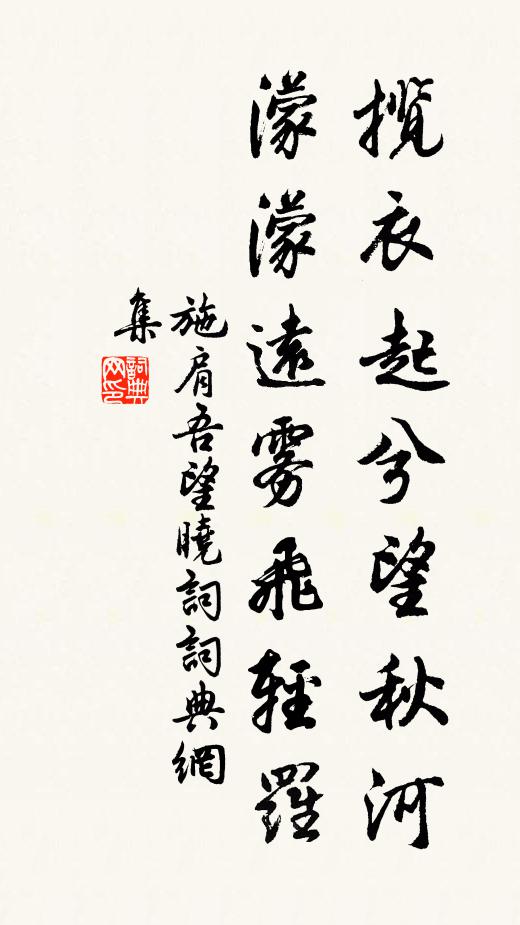 攬衣起兮望秋河
濛濛遠雾飛輕羅
施肩吾望曉詞詞典網
集
詞典
网印